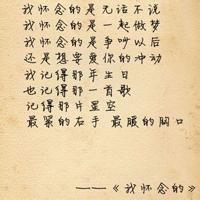 我怀念的是无话不说
我怀念的是一起做梦
我怀念的是争吵以后
还是想要爱你的冲动
我记得那年生日
也记得那一首歌
记得那片星空
最紧的右手 最暖的胸口
——《我怀念的》